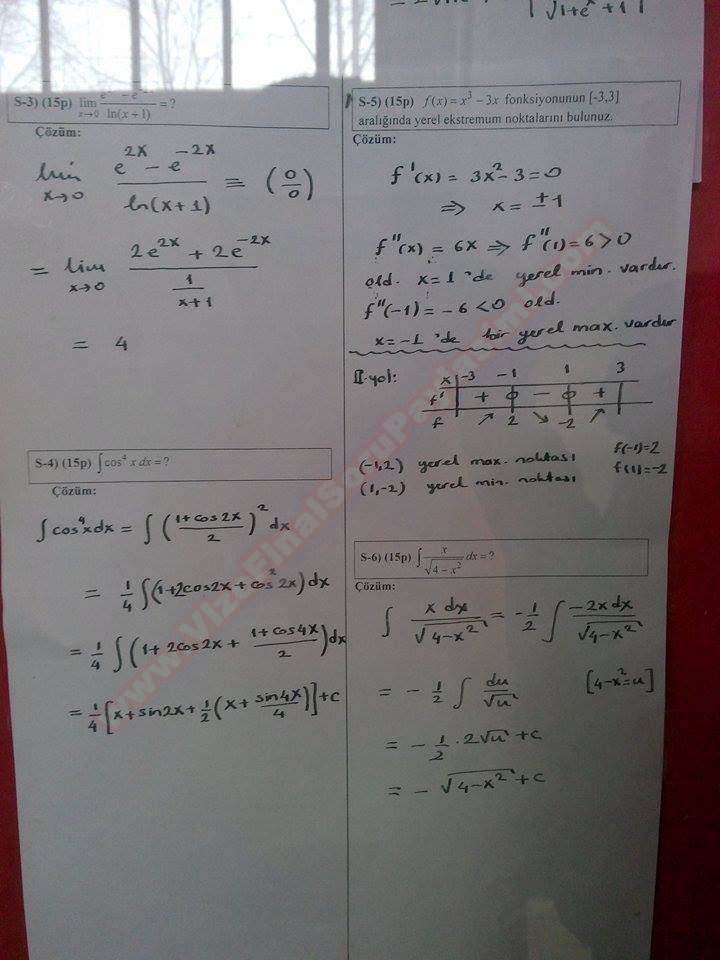 √1+eˣ + 1
S-3) (15p) lim x→0 (e − e)/ln(x+1) = ?
Çözüm:
lim x→0 (e^2x − e^-2x)/ln(x+1) = (0/0)
= lim x→0 (2e^2x + 2e^-2x)/(1/(x+1))
= 4
S-4) (15p) ∫cos⁴ x dx = ?
Çözüm:
∫cos⁴x dx = ∫((1+cos2x)/2)² dx
= 1/4 ∫(1+2cos2x+cos²2x)dx
= 1/4 ∫(1+2cos2x + (1+cos4x)/2)dx
= 1/4 [x+sin2x+1/2(x+sin4x/4)]+c
S-5) (15p) f(x) = x³ − 3x fonksiyonunun [-3,3]
aralığında yerel ekstremum noktalarını bulunuz.
Çözüm:
f'(x) = 3x²−3=0
⇒ x = ±1
f''(x) = 6x ⇒ f''(1)=6>0
old. x=1 'de yerel min. vardır.
f''(−1) = −6 <0 old.
x=−1 'de bir yerel max. vardır
II.yol:
x | −3 −1 1 3
f' | + 0 − 0 +
f | ↗ 2 ↘ −2 ↗
(−1,2) yerel max. noktası f(−1)=2
(1,−2) yerel min. noktası f(1)=−2
S-6) (15p) ∫ x/√(4−x²) dx = ?
Çözüm:
∫ x dx/√(4−x²) = −1/2 ∫ −2x dx/√(4−x²)
= −1/2 ∫ du/√u [4−x²=u]
= −1/2 · 2√u + c
= −√(4−x²) + c
www.VizeFinalSoruPaylasimi.com